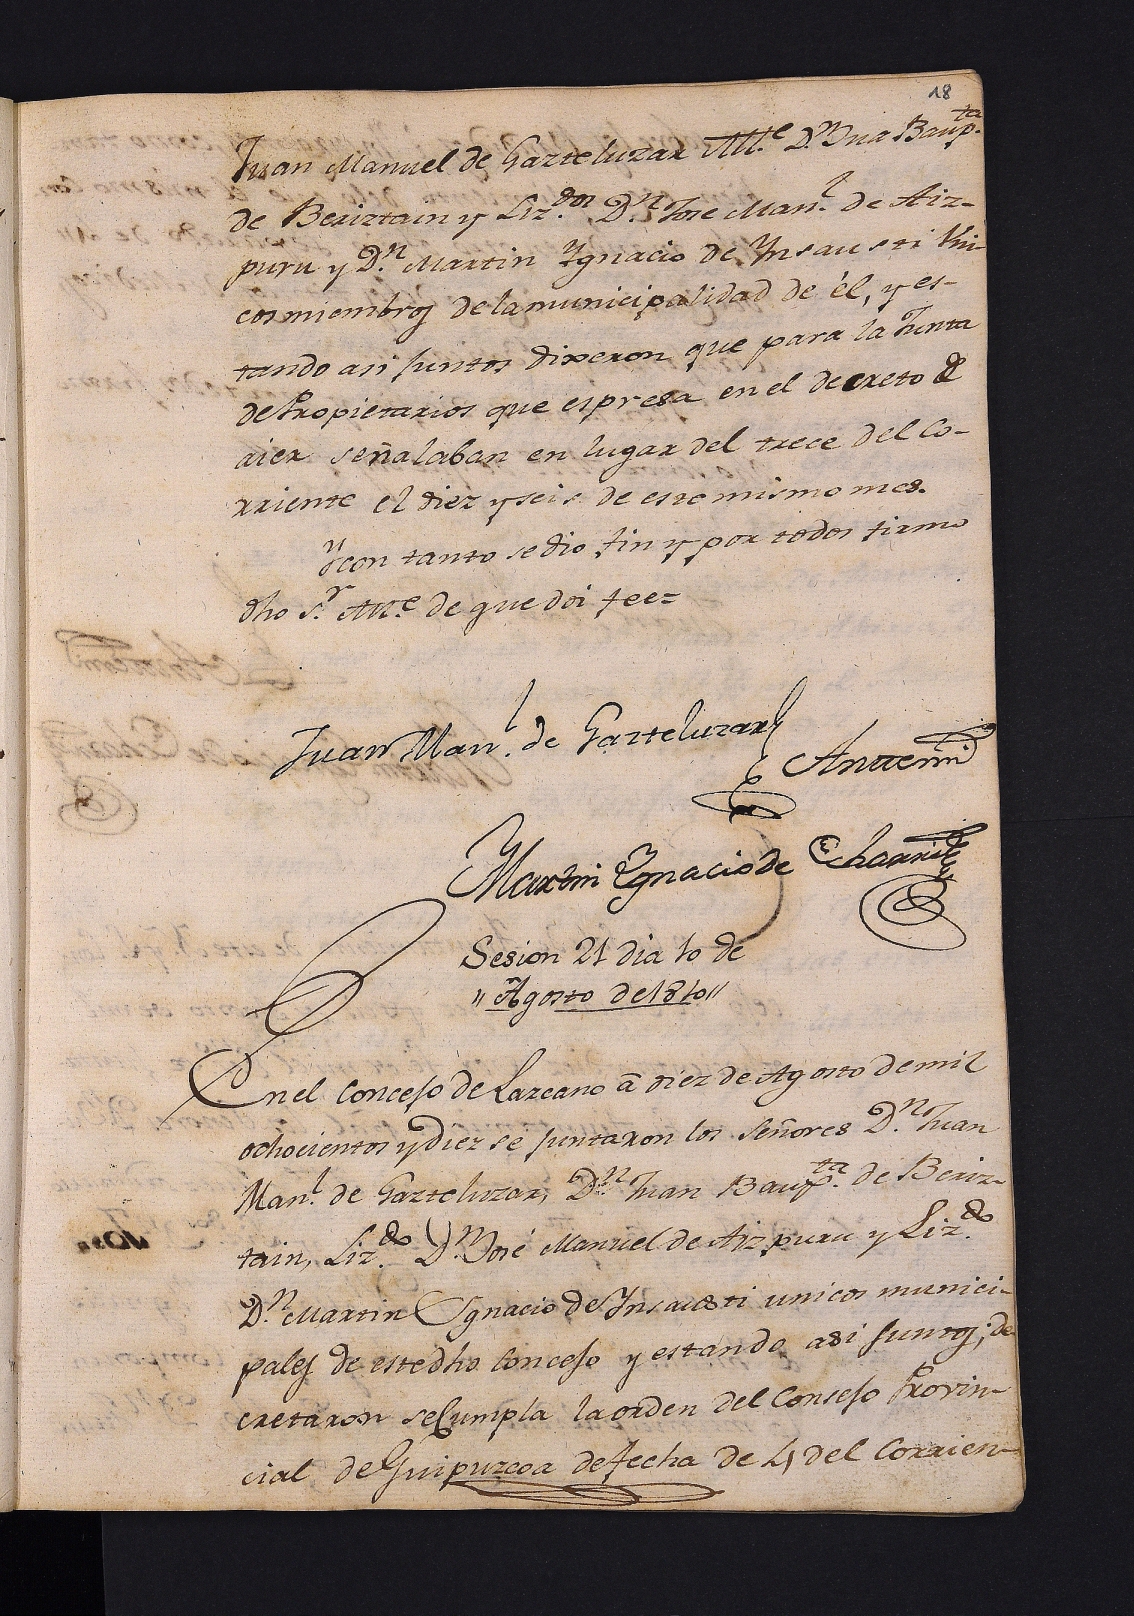 18
Juan Manuel de Gazteluzar Alt.e D.n Jua Baup.ta
de Beriztain y Liz.dos D.n Jose Man.l de Aiz-
puru y D.n Martin Ygnacio de Ynsausti Vni-
cos miembros de la municipalidad de él, y es-
tando asi juntos dixeron que para la Junta
de Propietarios que espresa en el decreto de
aier señalaban en lugar del trece del Co-
rriente el diez y seis de este mismo mes.
Y con tanto se dio fin y por todos firmo
dho s.r Alt.e de que doi fee=
Juan Man.l de Gazteluzar
Antemi
Martin Ygnacio de Echarri
Sesion 21 dia 10 de
" Agosto de 1810 "
En el Concejo de Lazcano â diez de Agosto de mil
ochocientos y diez se juntaron los Señores D.n Juan
Man.l de Gazteluzar, D.n Juan Baup.ta de Beriz-
tain, Liz.do D.n José Manuel de Aizpuru y Liz.do
D.n Martin Ygnacio de Ynsausti unicos munici-
pales de este dho Concejo y estando asi juntos; de
cretaron se Cumpla la orden del Consejo Provin-
cial de Guipuzcoa de fecha de 4 del Corrien-